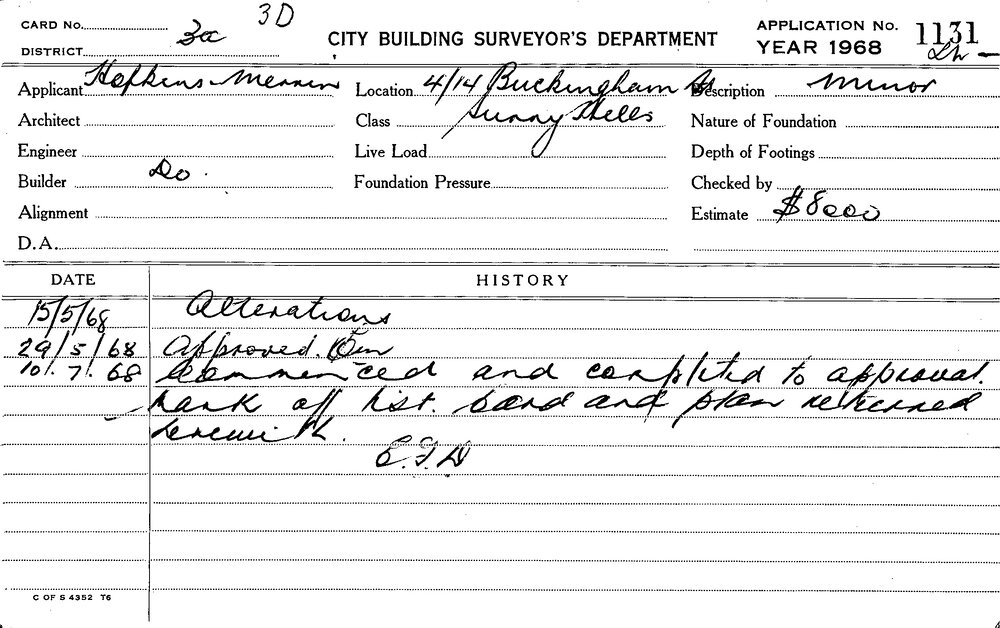 3D
CARD No.
3a
DISTRICT
CITY BUILDING SURVEYOR'S DEPARTMENT
APPLICATION No. 1131
YEAR 1968
Applicant Hopkins
Location 4/14 Buckingham St
Description Minor
Architect
Class Surry Hills
Nature of Foundation
Engineer
Live Load
Depth of Footings
Builder Do.
Foundation Pressure
Checked by
Alignment
Estimate $8000
D.A.
DATE HISTORY
15/5/68 Alterations
29/5/68 Approved.
10/.7/.68 Commenced and completed to approval.
mark off list. Card and plan returned
herewith.
E.F.D
C OF S 4352 T6